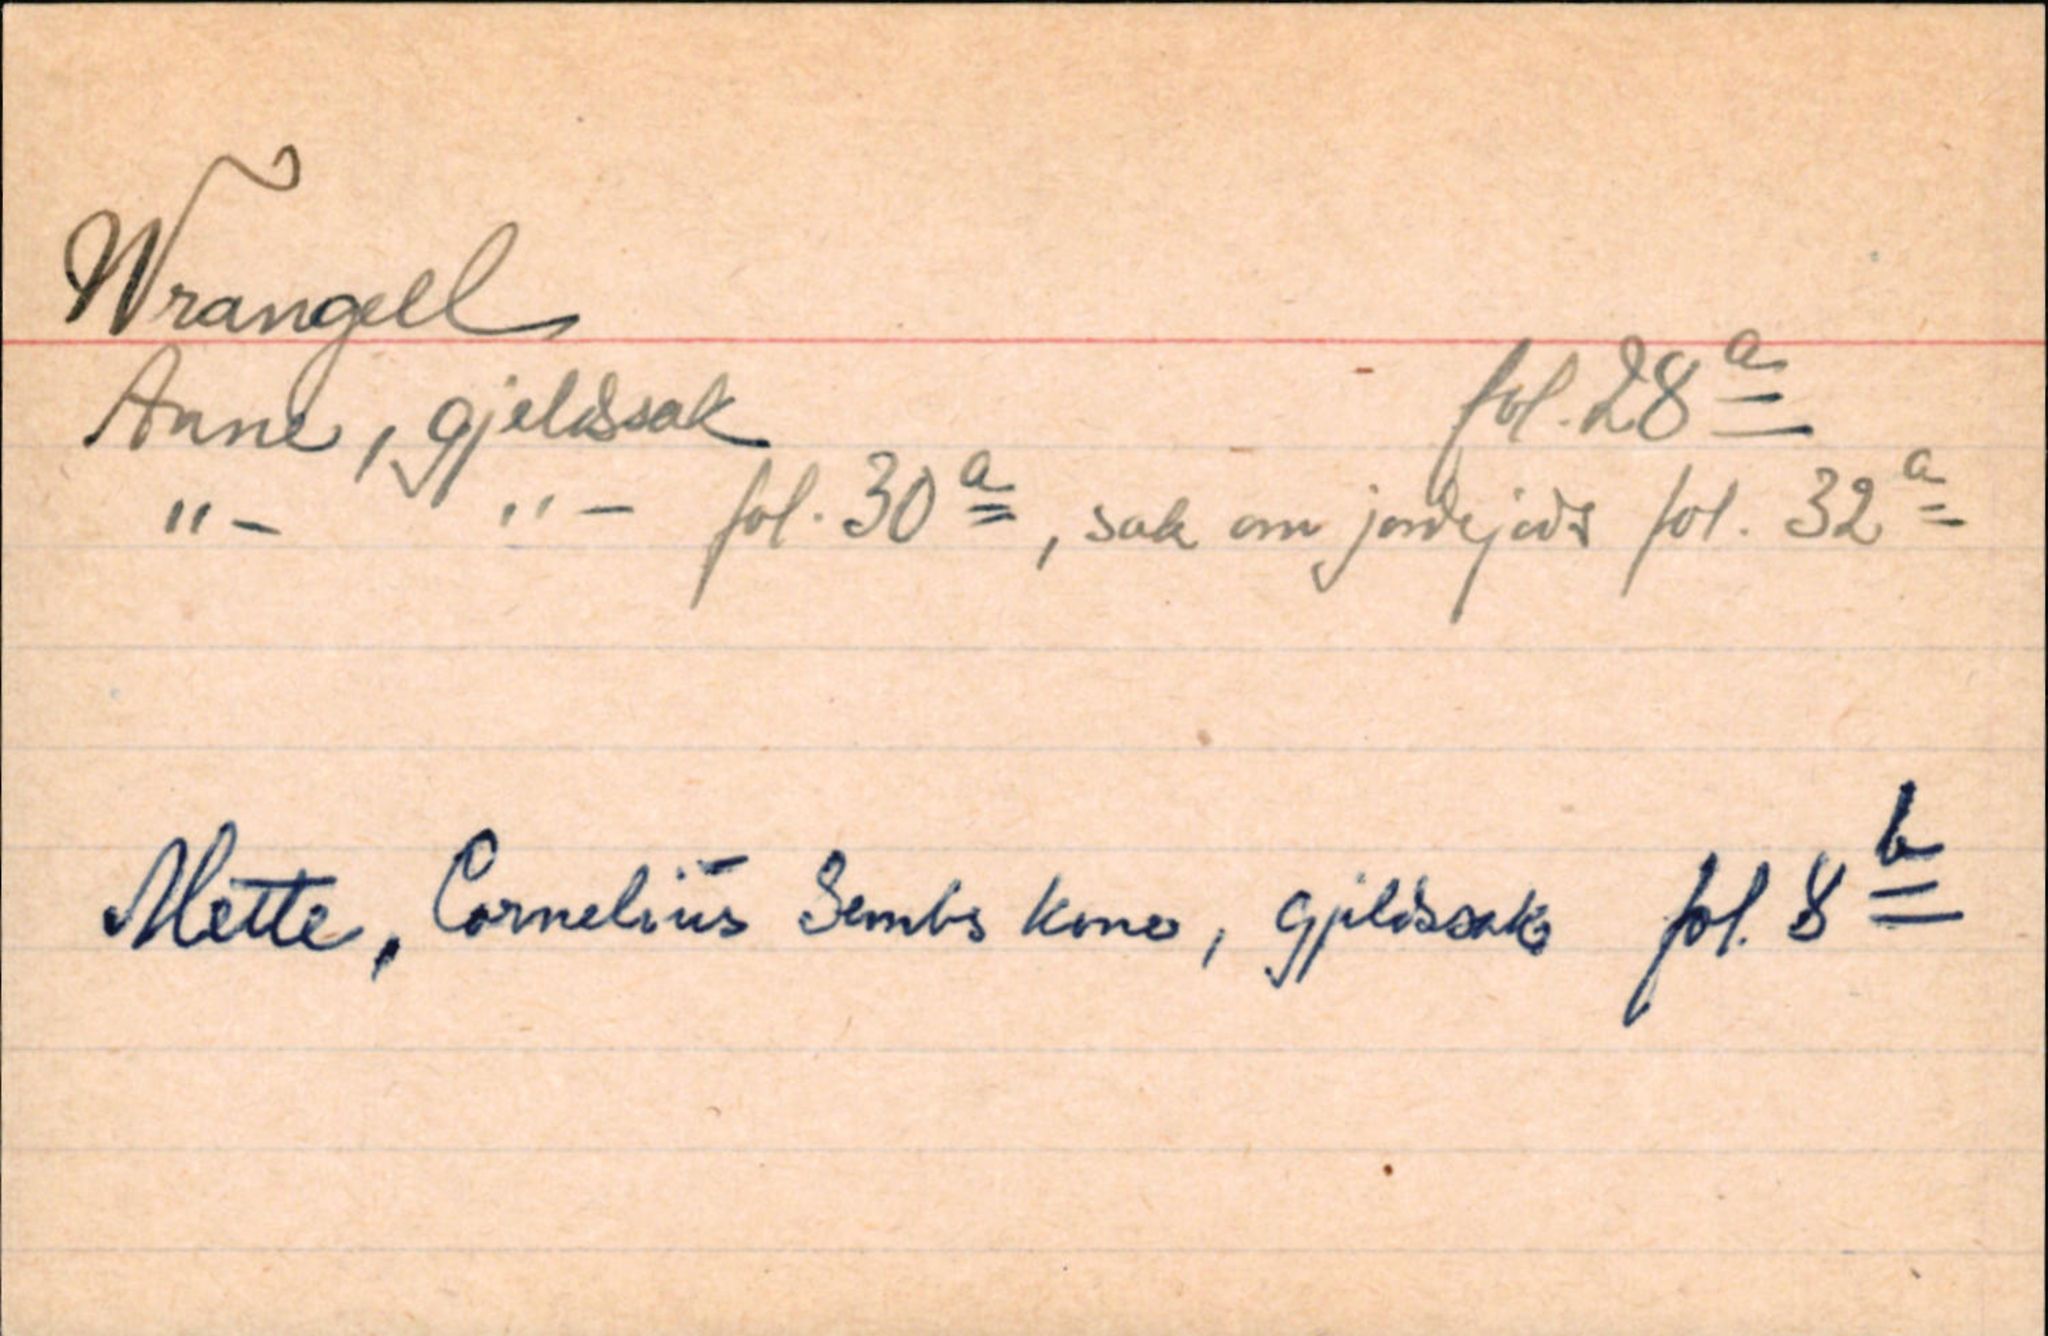 Wrangell
Anne, gjeldssak fol. 28 a
" - " - fol. 30 a, sak om jordejods fol. 32 a
Mette, Cornelius Sembs kone, gjeldssak fol. 8 b